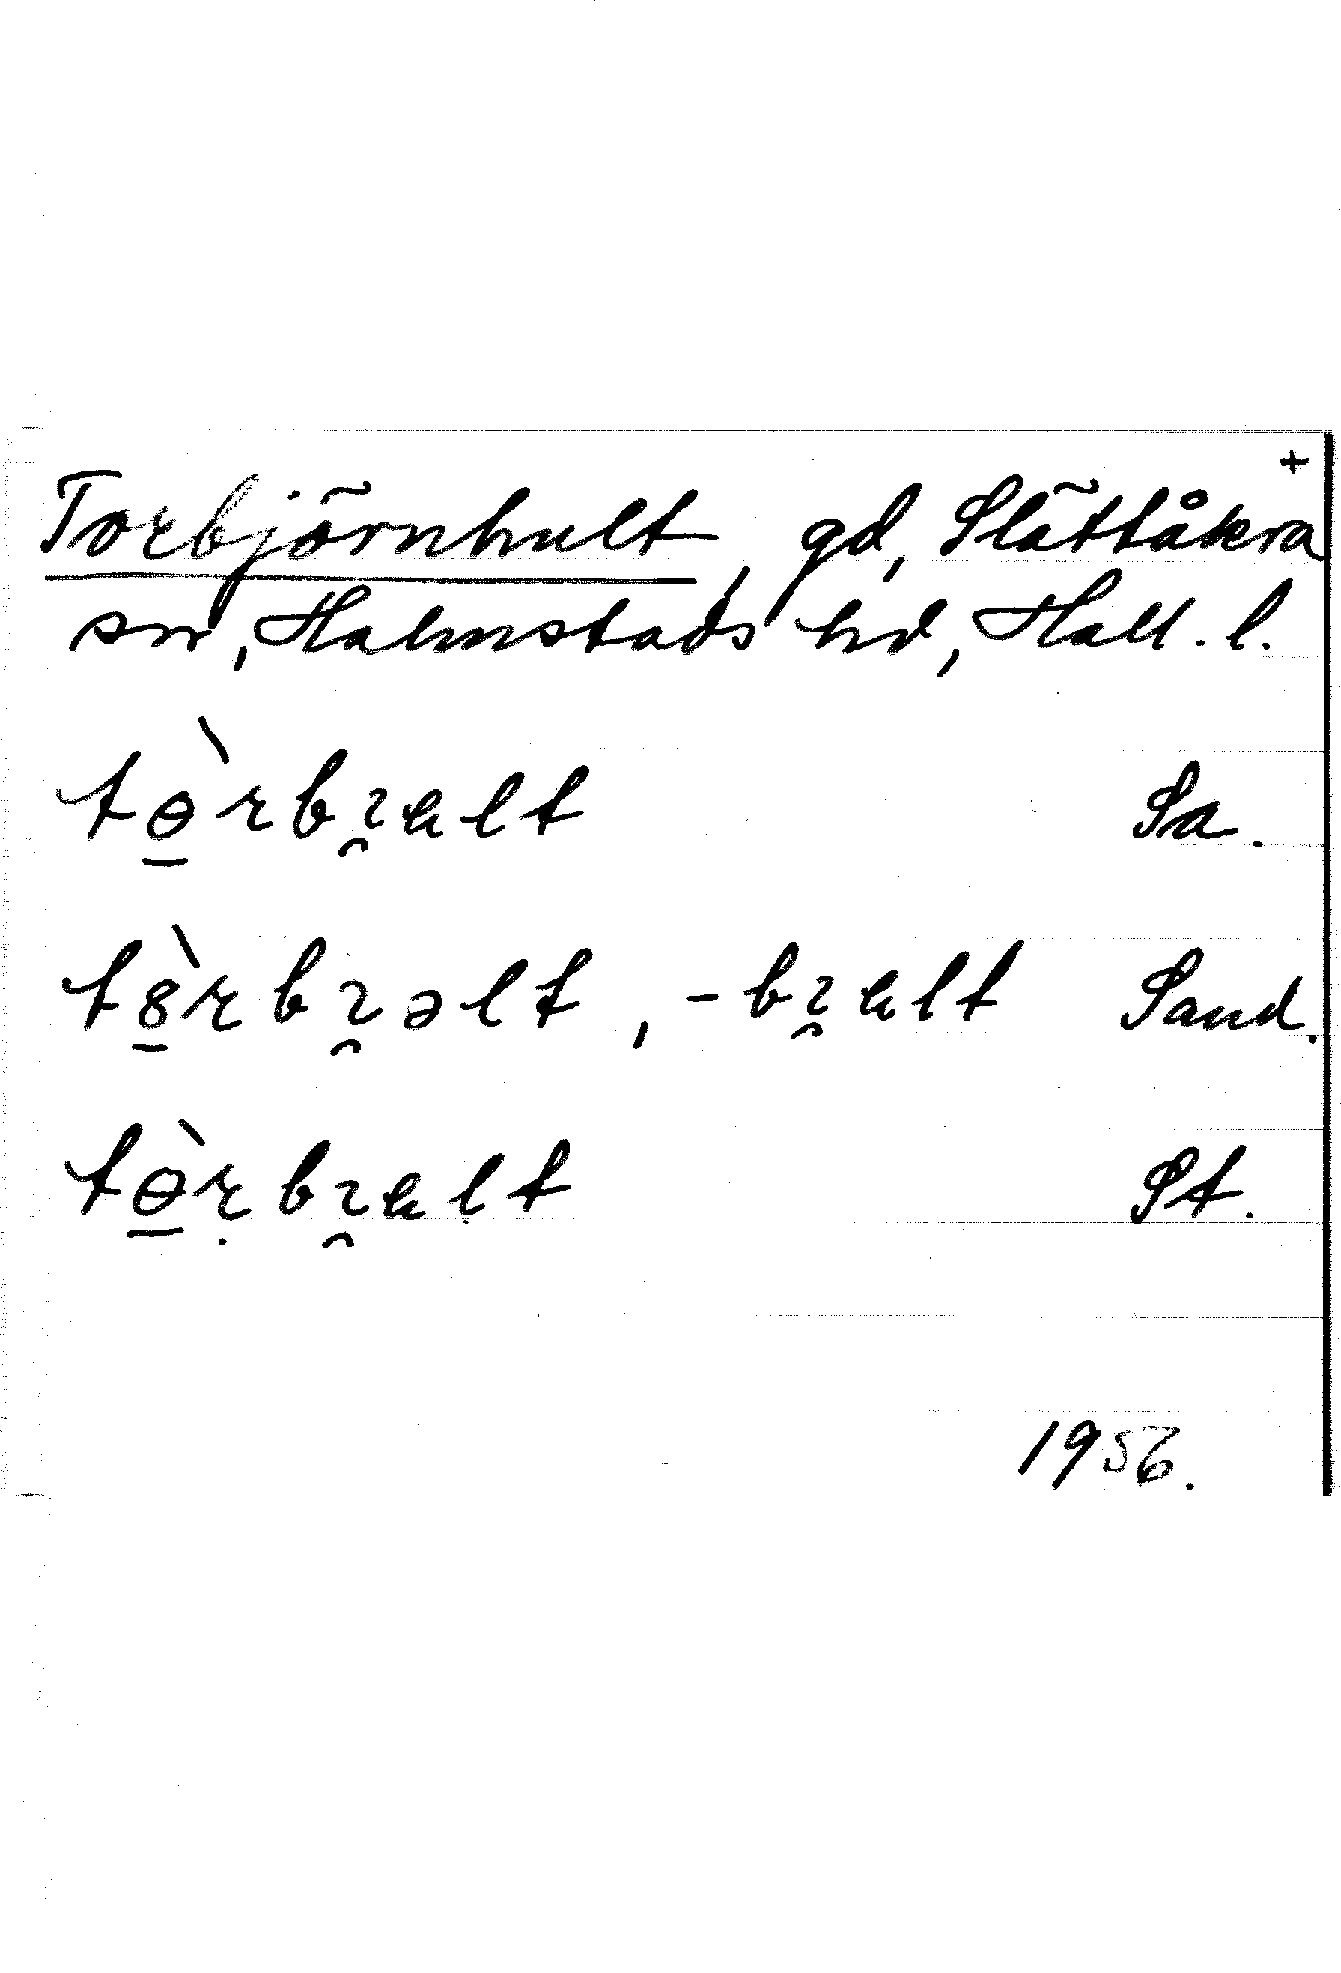 +
Torbjörnhult, gd, Slättåkra
sn, Halmstads hd, Hall. l.
tɵ̠̀rbɿ̯ɐlt Sa.
tȣ̠̀rbɿ̯əlt, -bɿ̯ɐlt Sand.
tɵ̠̀ṛbɿ̯ɐlt St.
1956.